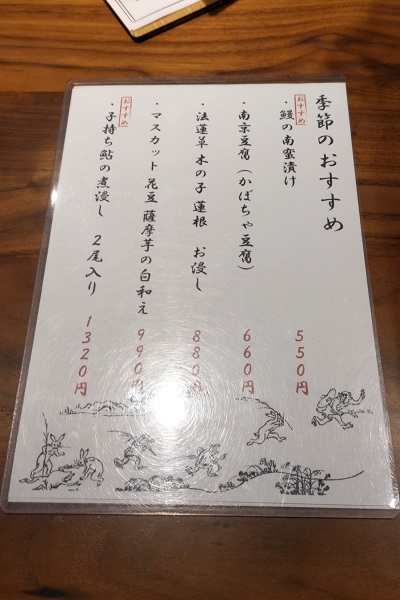 季節のおすすめ
おすすめ
・鰻の南蛮漬け 550円
・南京豆腐(かぼちゃ豆腐) 660円
・法蓮草 木の子 蓮根 お浸し 880円
・マスカット 花豆 薩摩芋の白和え 990円
おすすめ
・子持ち鮎の煮浸し 2尾入り 1320円